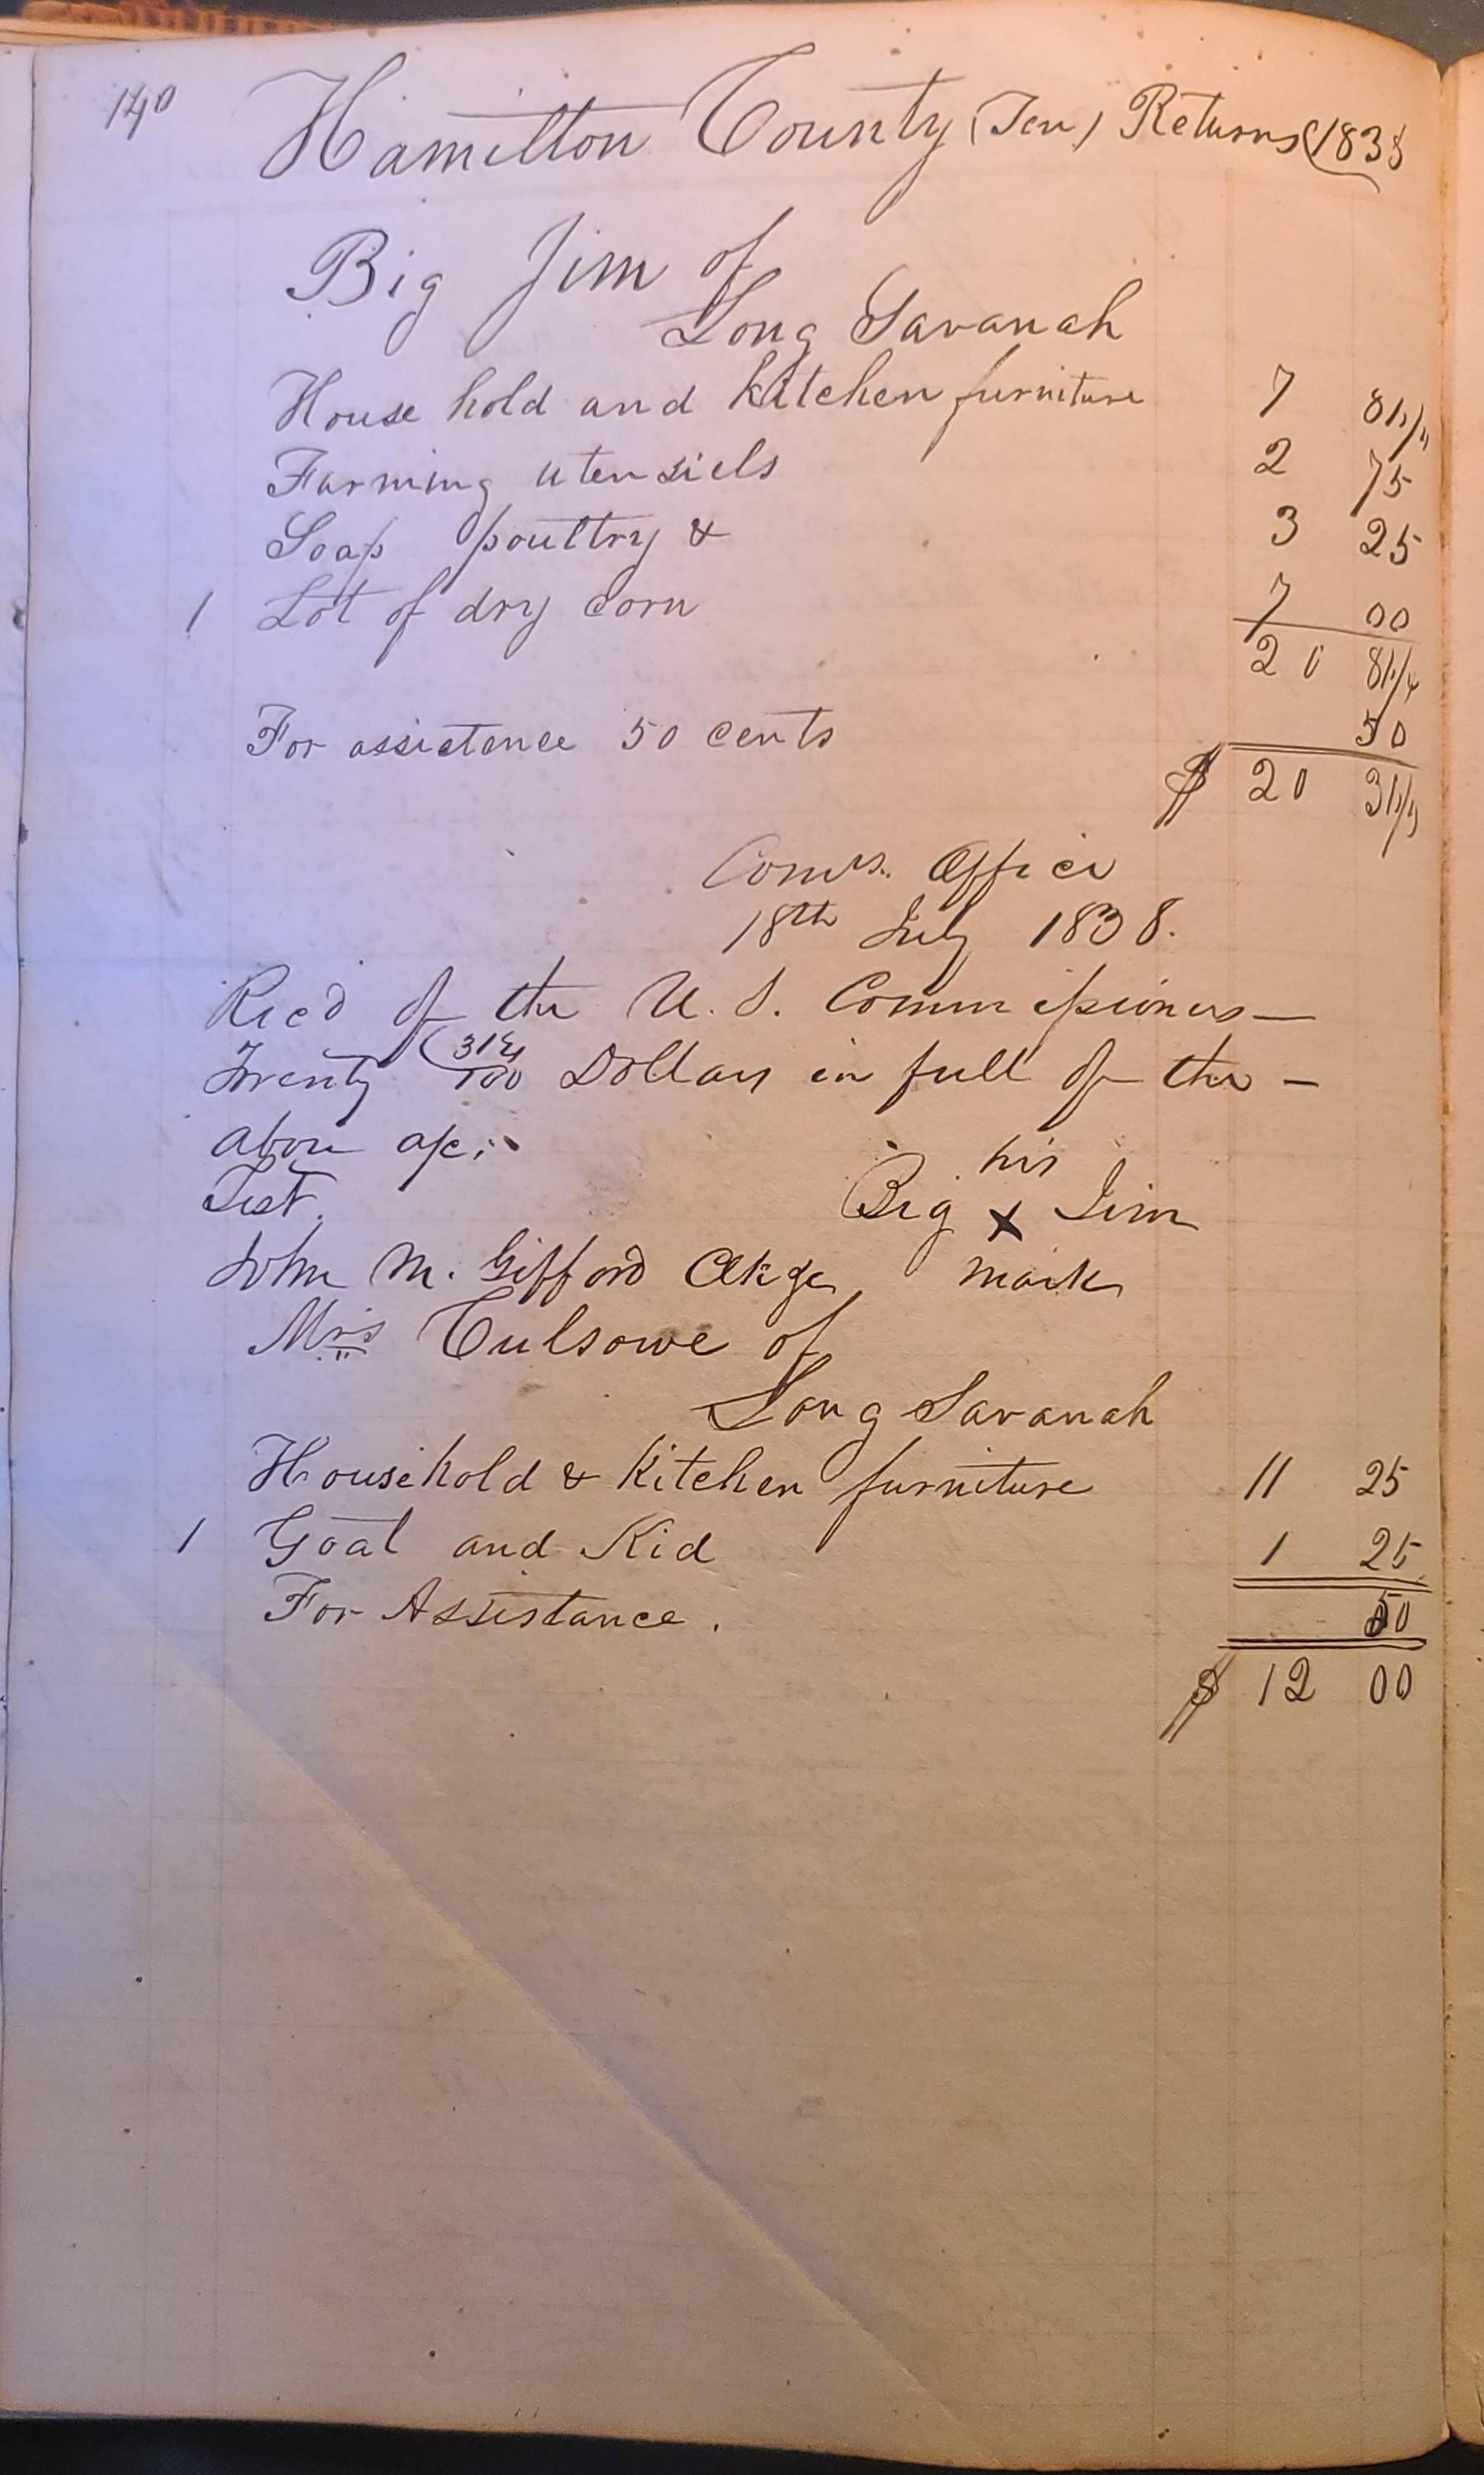 140 Hamilton County (Ten) Returns (1838
Big Jim of
Long Savanah
House hold and kitchen furniture 7 81 1/4
Farming utensiels 2 75
Soap poultry & 3 25
1 Lot of dry corn 7 00
20 81 1/4
For assistence 50 cents 50
$ 20 31 1/4
Comrs. Office
18th July 1838.
Rec'd of the U. S. Commissioners —
Twenty 31 1/4/100 Dollars in full of the —
above a/c.
Test. his
Big x Jim
John M. Gifford mark
Mrs Culsowe of
Long Savanah
Household & Kitchen furniture 11 25
1 Goat and Kid 1 25
For Assistance. 50
$ 12 00